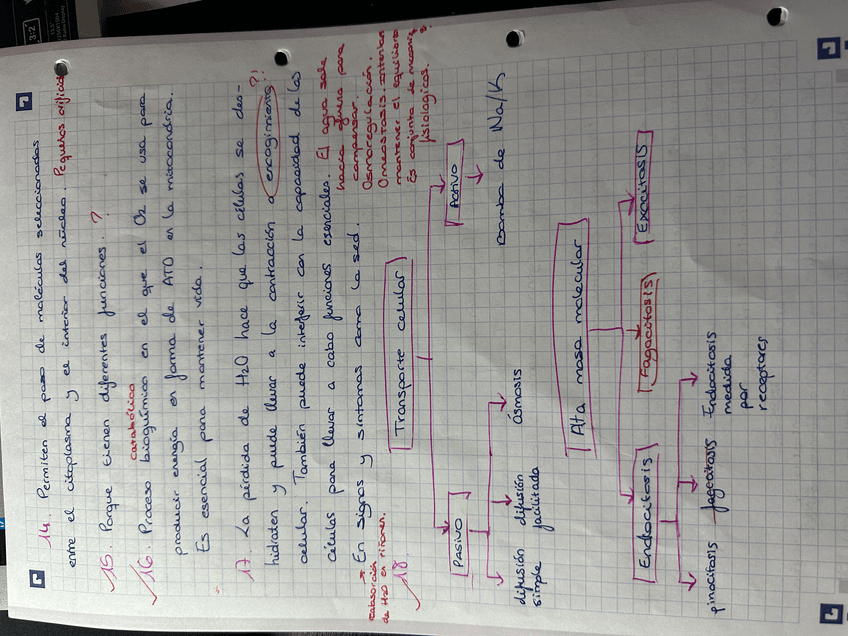 14. Permiten el paso de moléculas seleccionadas
entre el citoplasma y el interior del núcleo. Pequeños orificios
15. Porque tienen diferentes funciones. ?
catabólico
16. Proceso bioquímico en el que el O2 se usa para
producir energía en forma de ATO en la mitocondria.
Es esencial para mantener vida.
17. La pérdida de H2O hace que las células se des-
hidraten y puede llevar a la contracción o encogimiento ?!
celular. También puede interferir con la capacidad de las
células para llevar a cabo funciones esenciales. El agua sale
hacia afuera para
compensar.
Osmoregulación.
Omeostasis. contenlas
mantener el equilibrio
Es conjunta de mecanis
fisiologicas.
→ En signos y síntomas como la sed.
reabsorción
de H2O en riñones.
18.
Transporte celular
Pasivo
Activo
difusión simple
difusión facilitada
ósmosis
Bomba de Na/K
Alta masa molecular
Endocitosis
Fagacitosis
Exocitosis
pinocitosis
fagocitosis
Endocitosis
medida
por
receptores
3:2